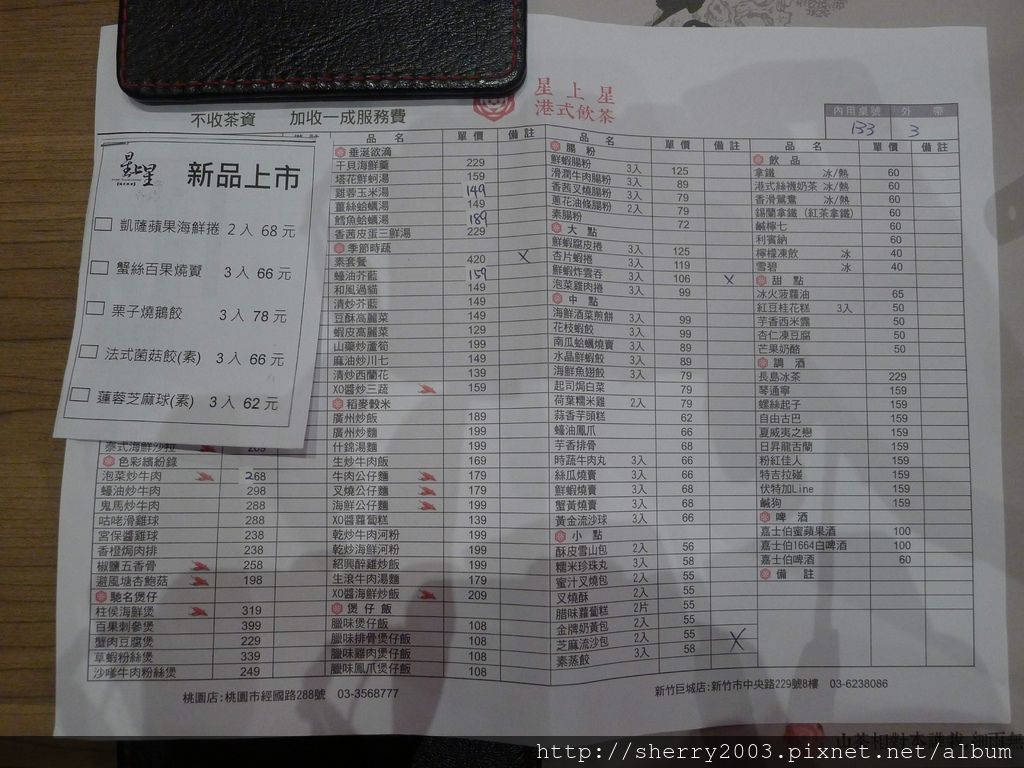 星上星
港式飲茶
不收茶資 加收一成服務費
內用桌號 外帶
133 3
星上星 新品上市
凱薩蘋果海鮮捲 2入 68元
蟹絲百果燒賣 3入 66元
栗子燒鵝餃 3入 78元
法式菌菇餃(素) 3入 66元
蓮蓉芝麻球(素) 3入 62元
泰式海鮮沙拉
色彩繽紛錄
泡菜炒牛肉 268
蠔油炒牛肉 298
鬼馬炒牛肉 288
咕咾滑雞球 288
宮保醬雞球 238
香橙焗肉排 238
椒鹽五香骨 258
避風塘杏鮑菇 198
馳名煲仔
柱侯海鮮煲 319
百果刺參煲 399
蟹肉豆腐煲 229
草蝦粉絲煲 339
沙嗲牛肉粉絲煲 249
品名 單價 備註
垂涎欲滴
干貝海鮮羹 229
塔花鮮蚵湯 159
雞蓉玉米湯 149
薑絲蛤蠣湯 149
鱈魚蛤蠣湯 189
香茜皮蛋三鮮湯 229
季節時蔬
素套餐 420 X
蠔油芥藍 159
和風過貓 149
清炒芥藍 149
豆酥高麗菜 149
蝦皮高麗菜 129
山藥炒蘆筍 199
麻油炒川七 149
清炒西蘭花 139
XO醬炒三蔬 159
稻麥穀米
廣州炒飯 189
廣州炒麵 199
什錦湯麵 199
生炒牛肉飯 169
牛肉公仔麵 179
叉燒公仔麵 179
海鮮公仔麵 199
XO醬蘿蔔糕 139
乾炒牛肉河粉 199
乾炒海鮮河粉 199
紹興醉雞炒飯 199
生滾牛肉湯麵 179
XO醬海鮮炒飯 209
煲仔飯
臘味煲仔飯 108
臘味排骨煲仔飯 108
臘味雞肉煲仔飯 108
臘味鳳爪煲仔飯 108
品名 單價 備註
腸粉
鮮蝦腸粉 3入 125
滑潤牛肉腸粉 3入 89
香茜叉燒腸粉 3入 79
蔥花油條腸粉 2入 79
素腸粉 72
大點
鮮蝦腐皮捲 3入 125
杏片蝦捲 3入 119
鮮蝦炸雲吞 3入 106 X
泡菜雞肉捲 3入 99
中點
海鮮酒菜煎餅 3入 99
花枝蝦餃 3入 99
南瓜蛤蠣燒賣 3入 89
水晶鮮蝦餃 3入 89
海鮮魚翅餃 3入 79
起司焗白菜 79
荷葉糯米雞 2入 79
蒜香芋頭糕 62
蠔油鳳爪 66
芋香排骨 68
時蔬牛肉丸 3入 66
絲瓜燒賣 3入 66
鮮蝦燒賣 3入 68
蟹黃燒賣 3入 68
黃金流沙球 3入 66
小點
酥皮雪山包 2入 56
糯米珍珠丸 3入 58
蜜汁叉燒包 2入 55
叉燒酥 2入 55
臘味蘿蔔糕 2片 55
金牌奶黃包 2入 55
芝麻流沙包 2入 55 X
素蒸餃 3入 58
品名 單價 備註
飲品
拿鐵 冰/熱 60
港式絲襪奶茶 冰/熱 60
香滑鴛鴦 冰/熱 60
錫蘭拿鐵(紅茶拿鐵) 60
鹹檸七 60
利賓納 60
檸檬凍飲 冰 40
雪碧 冰 40
甜點
冰火菠蘿油 65
紅豆桂花糕 3入 50
芋香西米露 50
杏仁凍豆腐 50
芒果奶酪 50
調酒
長島冰茶 229
琴通寧 159
螺絲起子 159
自由古巴 159
夏威夷之戀 159
日昇龍舌蘭 159
粉紅佳人 159
特吉拉碰 159
伏特加Line 159
鹹狗 159
啤酒
嘉士伯蜜蘋果酒 100
嘉士伯1664白啤酒 100
嘉士伯啤酒 60
備註
桃園店:桃園市經國路288號 03-3568777
新竹巨城店:新竹市中央路229號8樓 03-6238086
http://sherry2003.pixnet.net/album